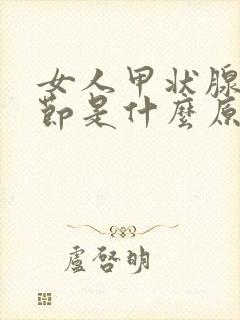 女人甲状腺
節是什麼原
盧啓明